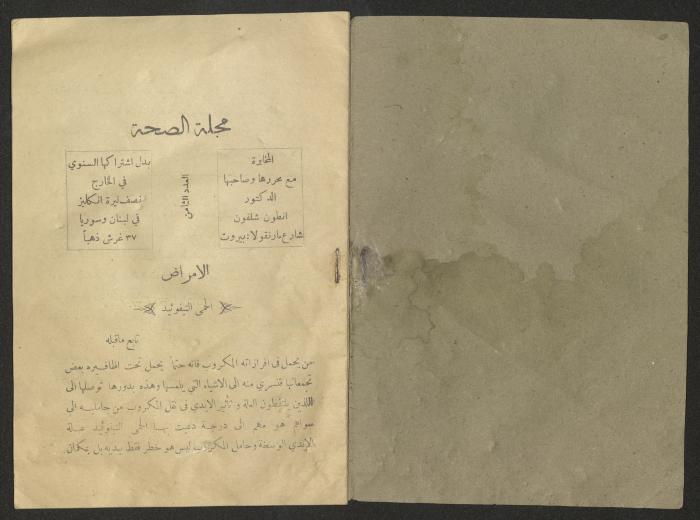 مجلة الصحة
المخابرة
مع محررها وصاحبها
الدكتور
انطون شلفون
شارع مار نقولا: بيروت
العدد الثامن
بدل اشتراكها السنوي
في الخارج
نصف ليرة انكليز
في لبنان وسوريا
٣٧ غرش ذهباً
الامراض
الحمى التيفوئيد
تابع ماقبله
من يحمل في افرازاته المكروب فانه حتماً يحمل تحت اظافيره بعض
تجمعاتها فتسري منه الى الاشياء التي يلمسها وهذه بدورها توصلها الى
اللذين يلتقطون العلة وتأثير الايدي في نقل المكروب من حامليه الى
سواهم هو مهم الى درجة دعيت بها الحمى التيفوئيد علة
الايدي الوسخة وحامل المكروب ليس هو خطر فقط بيديه بل يمكنه ان